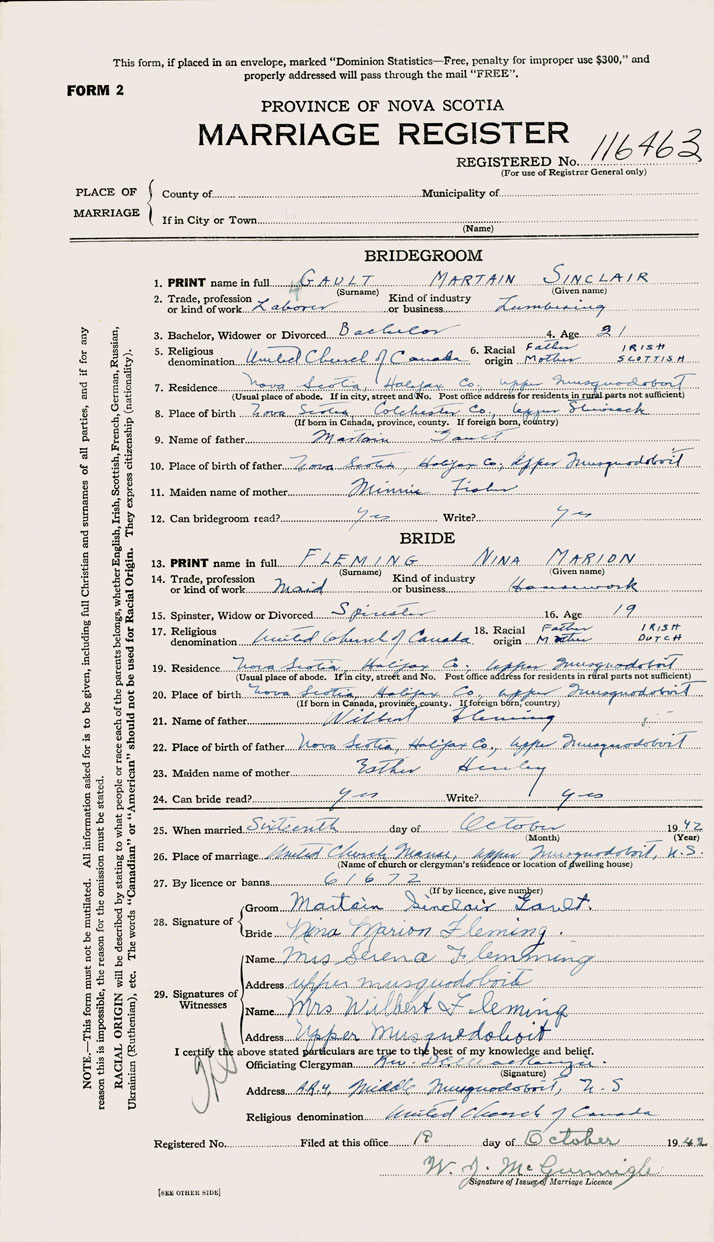 This form, if placed in an envelope, marked "Dominion Statistics—Free, penalty for improper use $300," and
properly addressed will pass through the mail "FREE".
FORM 2
PROVINCE OF NOVA SCOTIA
MARRIAGE REGISTER
REGISTERED No. 116463
(For use of Registrar General only)
PLACE OF MARRIAGE
County of Municipality of
If in City or Town
(Name)
BRIDEGROOM
1. PRINT name in full GAULT MARTAIN SINCLAIR
(Surname) (Given name)
2. Trade, profession or kind of work Laborer Kind of industry or business Lumbering
3. Bachelor, Widower or Divorced Bachelor 4. Age 21
5. Religious denomination United Church of Canada 6. Racial origin Father IRISH
Mother SCOTTISH
7. Residence Nova Scotia, Halifax Co. Upper Musquodoboit
(Usual place of abode. If in city, street and No. Post office address for residents in rural parts not sufficient)
8. Place of birth Nova Scotia, Colchester Co., Upper Stewiack
(If born in Canada, province, county. If foreign born, country)
9. Name of father Martain Gault
10. Place of birth of father Nova Scotia, Halifax Co, Upper Musquodoboit
11. Maiden name of mother Minnie Fisher
12. Can bridegroom read? yes Write? yes
BRIDE
13. PRINT name in full FLEMING NINA MARION
(Surname) (Given name)
14. Trade, profession or kind of work Maid Kind of industry or business Housework
15. Spinster, Widow or Divorced Spinster 16. Age 19
17. Religious denomination United Church of Canada 18. Racial origin Father IRISH
Mother DUTCH
19. Residence Nova Scotia, Halifax Co. Upper Musquodoboit
(Usual place of abode. If in city, street and No. Post office address for residents in rural parts not sufficient)
20. Place of birth Nova Scotia, Halifax Co., Upper Musquodoboit
(If born in Canada, province, county. If foreign born, country)
21. Name of father Wilbert Fleming
22. Place of birth of father Nova Scotia, Halifax Co., Upper Musquodoboit
23. Maiden name of mother Esther Henley
24. Can bride read? yes Write? yes
25. When married Sixteenth day of October 1942
(Month) (Year)
26. Place of marriage United Church Manse, Upper Musquodoboit, N.S.
(Name of church or clergyman's residence or location of dwelling house)
27. By licence or banns 61672
(If by licence, give number)
28. Signature of
Groom Martain Sinclair Gault.
Bride Nina Marion Fleming.
29. Signatures of Witnesses
Name Mrs Serena Flemming
Address upper musquodoboit
Name Mrs Wilbert Fleming
Address Upper Musquodoboit
I certify the above stated particulars are true to the best of my knowledge and belief.
Officiating Clergyman Rev.
(Signature)
Address RR.4, Middle Musquodoboit, N.S
Religious denomination United Church of Canada
Registered No. Filed at this office 19 day of October 1942
W. J. McGunnigle
Signature of Issuer of Marriage Licence
[SEE OTHER SIDE]
NOTE.—This form must not be mutilated. All information asked for is to be given, including full Christian and surnames of all parties, and if for any
reason this is impossible, the reason for the omission must be stated.
RACIAL ORIGIN will be described by stating to what people or race each of the parents belongs, whether English, Irish, Scottish, French, German, Russian,
Ukrainian (Ruthenian), etc. The words "Canadian" or "American" should not be used for Racial Origin. They express citizenship (nationality).